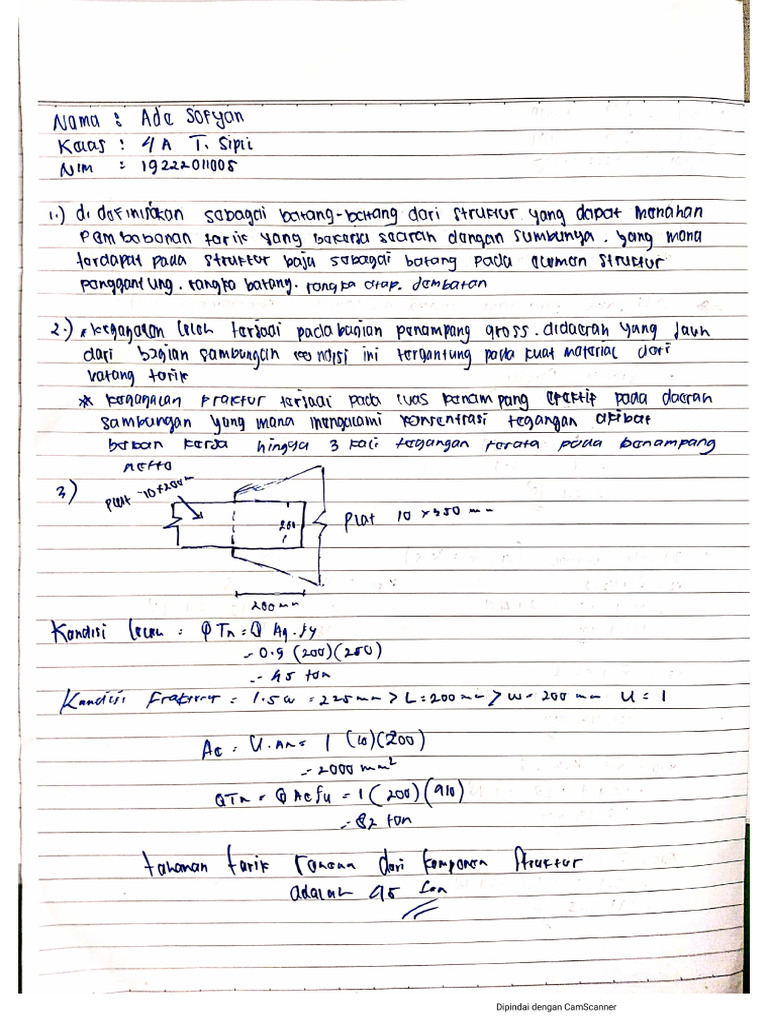 Nama : Ade Sofyan
Kelas : 4A T. Sipil
Nim : 19222011005
1.) di definisikan sebagai batang-batang dari struktur yang dapat menahan
Pembebanan tarik yang bekerja searah dengan sumbunya. yang mana
terdapat pada struktur baja sebagai batang pada elemen struktur
penggantung. rangka batang. rangka atap. Jembatan
2.) * kegagalan leleh terjadi pada bagian penampang gross. didaerah yang Jauh
dari bagian sambungan kondisi ini tergantung pada kuat material dari
vatang tarik
* kegagalan Fraktur terjadi pada luas penampang efektif pada daerah
sambungan yang mana mengalami konsentrasi tegangan akibat
beban kerja hingga 3 kali tegangan rerata pada penampang
netto
3)
Plat 10 x 200 mm
200
Plat 10 x 350 mm
200 mm
Kondisi leleh = φ Tn = φ Ag. fy
= 0.9 (200)(250)
= 45 ton
Kondisi Fraktur = 1.5 w = 225 mm > L = 200 mm > w = 200 mm U = 1
Ae = U. An = 1 (10)(200)
= 2000 mm²
φTn = φ Ae fu = 1 (200)(410)
= 82 ton
tahanan tarik rencana dari komponen struktur
adalah 45 ton
Dipindai dengan CamScanner